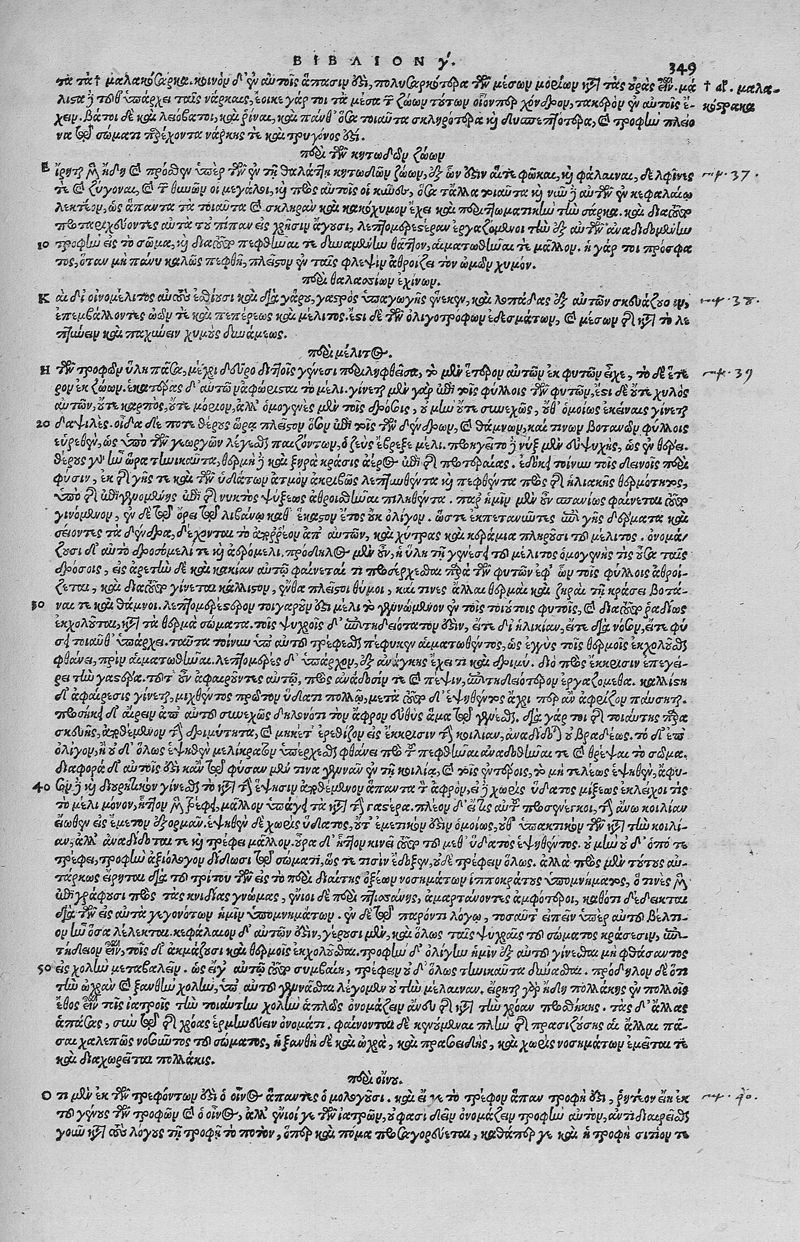 ΒΙΒΛΙΟΝ γ΄. 349
τα τὰ † μαλακόσαρκα. κοινὸν δ' ἐν αὐτοῖς ἅπασιν ἐστὶ, πολυσαρκότερα τῶν μέσων μορίων κατὰ τὰς οὐρὰς εἶναι. μά † αἱ. μαλα-
λιστα δὲ τοῦθ' ὑπάρχει ταῖς νάρκαις, ἔοικε γάρ τοι τὰ μέσα τῶν ζώων τούτων οἷόνπερ χόνδρον, τακερὸν ἐν αὑτοῖς ἔ- κόστρακα
χειν. βάτοι δὲ καὶ λειόβατοι, καὶ ῥῖναι, καὶ πάνθ' ὅσα τοιαῦτα σκληρότερα καὶ δυσπεπτότερα, καὶ τροφὴν πλείο
να τῷ σώματι παρέχοντα νάρκης τε καὶ τρυγόνος ἐστί.
περὶ τῶν κητωδῶν ζώων
Εἴρηται μὲν ἤδη καὶ πρόσθεν ὑπὲρ τῶν ἐν τῇ θαλάττῃ κητωδῶν ζώων, ἐξ ὧν ἐστιν αἵ τε φῶκαι, καὶ φάλαιναι, δελφῖνές 37.
τε καὶ ζύγαιναι, καὶ τῶν θύννων οἱ μεγάλοι, καὶ πρὸς αὐτοῖς οἱ κύνες, ὅσα τ' ἄλλα τοιαῦτα καὶ νῦν δ' αὐτῶν ἐν κεφαλαίῳ
λεκτέον, ὡς ἅπαντα τὰ τοιαῦτα καὶ σκληρὰν καὶ κακόχυμον ἔχει καὶ περιττωματικὴν τὴν σάρκα. καὶ διὰ τοῦτο
προταριχεύοντες αὐτὰ τοὐπίπαν εἰς χρῆσιν ἄγουσι, λεπτομερεστέραν ἐργαζόμενοι τὴν ἐξ αὐτῶν ἀναδιδομένην
10 τροφὴν εἰς τὸ σῶμα, καὶ διὰ τοῦτο πεφθῆναί τε δυναμένην θᾶττον, αἱματωθῆναί τε μᾶλλον. ἡ γάρ τοι πρόσφα
τος, ὅταν μὴ πάνυ καλῶς πεφθῇ, πλεῖστον ἐν ταῖς φλεψὶν ἀθροίζει τὸν ὠμὸν χυμόν.
περὶ θαλασσίων ἐχίνων.
Καὶ δι' οἰνομέλιτος αὐτοὺς ἐσθίουσι καὶ διὰ γάρου, γαστρὸς ὑπαγωγῆς ἕνεκεν, καὶ λοπάδας ἐξ αὐτῶν σκευάζουσιν, 38.
ἐπεμβάλλοντες ὠῶν τε καὶ πεπέρεως καὶ μέλιτος. ἔστι δὲ τῶν ὀλιγοτρόφων ἐδεσμάτων, καὶ μέσων τῆς κατὰ τὸ λε
πτύνειν καὶ παχύνειν χυμοὺς δυνάμεως.
περὶ μέλιτος.
Ἡ τῶν τροφῶν ὕλη πᾶσα, μέχρι δεῦρο διττοῖς γένεσι περιληφθεῖσα, τὸ μὲν ἕτερον αὐτῶν ἐκ φυτῶν εἶχε, τὸ δὲ ἕτε 39
ρον ἐκ ζώων. ἑκατέρας δ' αὐτῶν ἀφώρισται τὸ μέλι. γίνεται μὲν γὰρ ἐπὶ τοῖς φύλλοις τῶν φυτῶν, ἔστι δὲ οὔτε χυλὸς
αὐτῶν, οὔτε καρπὸς, οὔτε μόριον, ἀλλ' ὁμογενὲς μὲν τοῖς δρόσοις, οὐ μὴν οὔτε συνεχῶς, οὔθ' ὁμοίως ἐκείναις γίνεται
20 δαψιλές. οἶδα δέ ποτε θέρους ὥρᾳ πλεῖστον ὅσον ἐπὶ τοῖς τῶν δένδρων, καὶ θάμνων, καί τινων βοτανῶν φύλλοις
εὑρεθὲν, ὡς ὑπὸ τῶν γεωργῶν λέγεσθαι παιζόντων, ὁ ζεὺς ἔβρεξε μέλι. προηγεῖτο δὲ νὺξ μὲν εὐψυχὴς, ὡς ἐν θέρει.
θέρους γὰρ ἦν ὥρα τηνικαῦτα, θερμὴ δὲ καὶ ξηρὰ κρᾶσις ἀέρος ἐπὶ τῆς προτεραίας. ἐδόκει τοίνυν τοῖς δεινοῖς περὶ
φύσιν, ἐκ τῆς γῆς τε καὶ τῶν ὑδάτων ἀτμὸν ἀκριβῶς λεπτυνθέντα καὶ πεφθέντα πρὸς τῆς ἡλιακῆς θερμότητος,
ὑπὸ τῆς ἐπιγενομένης ἐπὶ τῆς νυκτὸς ψύξεως ἀθροισθῆναι πιληθέντα. παρ' ἡμῖν μὲν οὖν σπανίως φαίνεται τοῦτο
γινόμενον, ἐν δὲ τῷ ὄρει τῷ λιβάνῳ καθ' ἕκαστον ἔτος οὐκ ὀλίγον. ὥστε ἐκπεταννῦντες ἐπὶ γῆς δέρματα καὶ
σείοντες τὰ δένδρα, δέχονται τὸ ἀπορρέον ἀπ' αὐτῶν, καὶ χύτρας καὶ κεράμια πληροῦσι τοῦ μέλιτος. ὀνομά-
ζουσι δ' αὐτὸ δροσόμελί τε καὶ ἀερόμελι. πρόδηλος μὲν οὖν, ἡ ὕλη τῆς γενέσεως τοῦ μέλιτος ὁμογενής τις οὖσα ταῖς
δρόσοις, εἰς ἀρετὴν δὲ καὶ κακίαν αὐτῷ φαίνεταί τι προσέρχεσθαι παρὰ τῶν φυτῶν ἐφ' ὧν τοῖς φύλλοις ἀθροί-
ζεται, καὶ διὰ τοῦτο γίνεται κάλλιστον, ἔνθα πλεῖστοι θύμοι, καί τινες ἄλλαι θερμαὶ καὶ ξηραὶ τῇ κράσει βοτά-
30 ναι τε καὶ θάμνοι. λεπτομερέστερον τοιγαροῦν ἐστὶ μέλι τὸ γεννώμενον ἐν τοῖς τοιούτοις φυτοῖς, καὶ διὰ τοῦτο ῥᾳδίως
ἐκχολοῦται, κατὰ τὰ θερμὰ σώματα. τοῖς ψυχροῖς δ' ἐπιτηδειότατόν ἐστιν, εἴτε δι' ἡλικίαν, εἴτε διὰ νόσον, εἴτε φύ
σει τοιαῦθ' ὑπάρχει. ταῦτα τοίνυν ὑπ' αὐτοῦ τρέφεσθαι πέφυκεν αἱματωθέντος, ὡς ἔνγε τοῖς θερμοῖς ἐκχολοῦσθαι
φθάνει, πρὶν αἱματωθῆναι. λεπτομερὲς δ' ὑπάρχον, ἐξ ἀνάγκης ἔχει τι καὶ δριμύ. διὸ πρὸς ἔκκρισιν ἐπεγεί-
ρει τὴν γαστέρα. τοῦτ' οὖν ἀφαιροῦντες αὐτῷ, πρὸς ἀνάδοσίν τε καὶ πέψιν, ἐπιτηδειότερον ἐργαζόμεθα. καλλίστη
δ' ἀφαίρεσις γίνεται, μιχθέντος πρότερον ὕδατι πολλῷ, μετὰ τοῦτο δ' ἑψηθέντος ἄχρι περ ἂν ἀφρίζον παύσηται.
προσήκει δ' αἴρειν ἀπ' αὐτοῦ συνεχῶς δηλονότι τὸν ἀφρὸν εὐθὺς ἅμα τῷ γενέσθαι. διὰ γάρ τοι τῆς τοιαύτης παρα
σκευῆς, ἀποτίθεται μὲν τὴν δριμύτητα, καὶ μηκέτ' ἐρεθίζον εἰς ἔκκρισιν τὴν κοιλίαν, ἀναδίδοται οὐ βραδέως. τὸ δ' ἐπ'
ὀλίγον, ἢ οὐδ' ὅλως ἑψηθὲν μελίκρατον ὑπέρχεσθαι φθάνει πρὸ τοῦ πεφθῆναι ἀναδοθῆναί τε καὶ θρέψαι τὸ σῶμα.
διαφορὰ δ' αὐτοῖς ἐστὶ κἀν τῷ φῦσαν μέν τινα γεννᾶν ἐν τῇ κοιλίᾳ, καὶ τοῖς ἐντέροις, τὸ μὴ τελέως ἑψηθὲν, ἄφυ-
40 σον δὲ καὶ οὐρητικὸν γίνεσθαι τὸ κατὰ τὴν ἕψησιν ἀποθέμενον ἅπαντα τὸν ἀφρόν, εἰ δὲ χωρὶς ὕδατος μίξεως ἐκλείχοι τις
τὸ μέλι μόνον, ἧττον μὲν τρέφει, μᾶλλον ὑπάγει τὰ κατὰ τὴν γαστέρα. πλέον δ' εἴ τις αὐτοῦ προσενέγκοι, τὴν ἄνω κοιλίαν
εἴωθεν εἰς ἔμετον ἐξορμᾶν. ἑψηθὲν δὲ χωρὶς ὕδατος, οὔτ' ἐμετικόν ἐστιν ὁμοίως, οὔθ' ὑπακτικὸν τῶν κατὰ τὴν κοιλί-
αν, ἀλλ' ἀναδίδοταί τε καὶ τρέφει μᾶλλον. οὖρα δ' ἧττον κινεῖ τοῦτο τοῦ μεθ' ὕδατος ἑψηθέντος. οὐ μὴν οὐδ' ὁπότε
τρέφει, τροφὴν ἀξιόλογον δίδωσι τῷ σώματι, ὥς τέ τισιν ἔδοξεν, οὐδὲ τρέφειν ὅλως. ἀλλὰ πρὸς μὲν τούτους αὐ-
τάρκως εἴρηται διὰ τοῦ τρίτου τῶν εἰς τὸ περὶ διαίτης ὀξέων νοσημάτων ἱπποκράτους ὑπομνήματος, ὅ τινες μὲν
ἐπιγράφουσι πρὸς τὰς κνιδίας γνώμας, ἔνιοι δὲ περὶ πτισάνης, ἁμαρτάνοντες ἀμφότεροι, καθότι δέδεικται
διὰ τῶν εἰς αὐτὰ γεγονότων ἡμῖν ὑπομνημάτων. ἐν δὲ τῷ παρόντι λόγῳ, τοσαῦτ' εἰπεῖν ὑπὲρ αὐτοῦ βέλτι-
ον ἦν ὅσα λέλεκται. κεφάλαιον δ' αὐτῶν ἐστιν, γέρουσι μὲν, καὶ ὅλως τοῖς ψυχρᾶς τοῦ σώματος κράσεως, ἐπι-
τήδειον εἶναι, τοῖς δ' ἀκμάζουσι καὶ θερμοῖς ἐκχολοῦσθαι. τροφὴν δ' ὀλίγην ἡμῖν ἐξ αὐτοῦ γίνεσθαι μὴ φθάσαντος
50 εἰς χολὴν μεταβαλεῖν. ὡς εἴγε αὐτῷ τοῦτο συμβαίη, τρέφειν οὐδ' ὅλως τηνικαῦτα δύνασθαι. πρόδηλον δὲ ὅτι
τὴν ὠχρὰν καὶ ξανθὴν χολὴν, ὑπ' αὐτοῦ γεννᾶσθαι λέγομεν οὐ τὴν μέλαιναν. εἴρηται γὰρ ἤδη πολλάκις ἐν πολλοῖς
ἔθος εἶναι τοῖς ἰατροῖς τὴν τοιαύτην χολὴν ἁπλῶς ὀνομάζειν ἄνευ τῆς κατὰ τὴν χρόαν προσθήκης. τὰς δ' ἄλλας
ἁπάσας, σὺν τῷ τῆς χρόας ἑρμηνεύειν ὀνόματι. φαίνονται δὲ κενούμεναι πλὴν τῆς πρασιζούσης αἱ ἄλλαι πᾶ-
σαι χαλεπῶς νοσοῦντος τοῦ σώματος, ἡ ξανθὴ δὲ καὶ ὠχρὰ, καὶ πρασοειδὴς, καὶ χωρὶς νοσημάτων ἐμεῖταί τε
καὶ διαχωρεῖται πολλάκις.
περὶ οἴνου.
Ὅτι μὲν ἐκ τῶν τρεφόντων ἐστὶ ὁ οἶνος ἅπαντες ὁμολογοῦσι. καὶ εἴ γε τὸ τρέφον ἅπαν τροφή ἐστι, ῥητέον εἴη ἐκ 40.
τοῦ γένους τῶν τροφῶν καὶ ὁ οἶνος, ἀλλ' ἔνιοί γε τῶν ἰατρῶν, οὔ φασι δεῖν ὀνομάζειν τροφὴν αὐτὸν, ἀντιδιαιρεῖσθαι
γοῦν κατὰ τοὺς λόγους τῇ τροφῇ τὸ ποτὸν, ὅπερ καὶ πόμα προσαγορεύεται, καθάπερ γε καὶ ἡ τροφὴ σιτίον τε